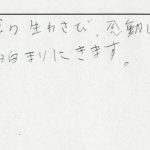 の生わさび、感動し
泊まりにきます。